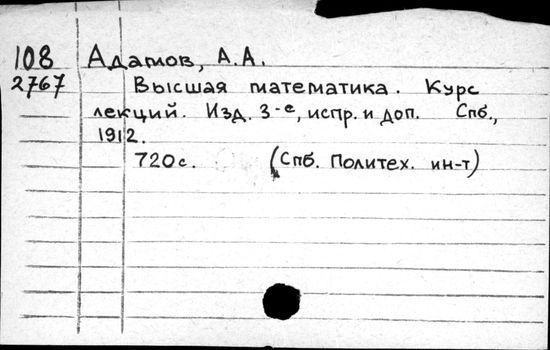 108 Адамов, А.А.
2767 Высшая математика. Курс
лекций. Изд. 3-е, испр. и доп. Спб.,
1912.
720с. (Спб. Политех. ин-т)